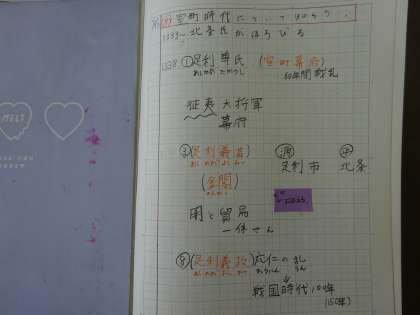 MELT
室町時代について
1333~ 北条氏がほろびる
1338 ①足利尊氏 (室町幕府)
あしかが たかうじ 60年間戦乱
征夷大将軍
幕府
③足利義満
あしかがよしみつ
(金閣)
足利市 北条
明と貿易
一休さん
⑧(足利義政) 応仁の乱
あしかがよしまさ おうにん らん
↓
戦国時代100年
(150年)